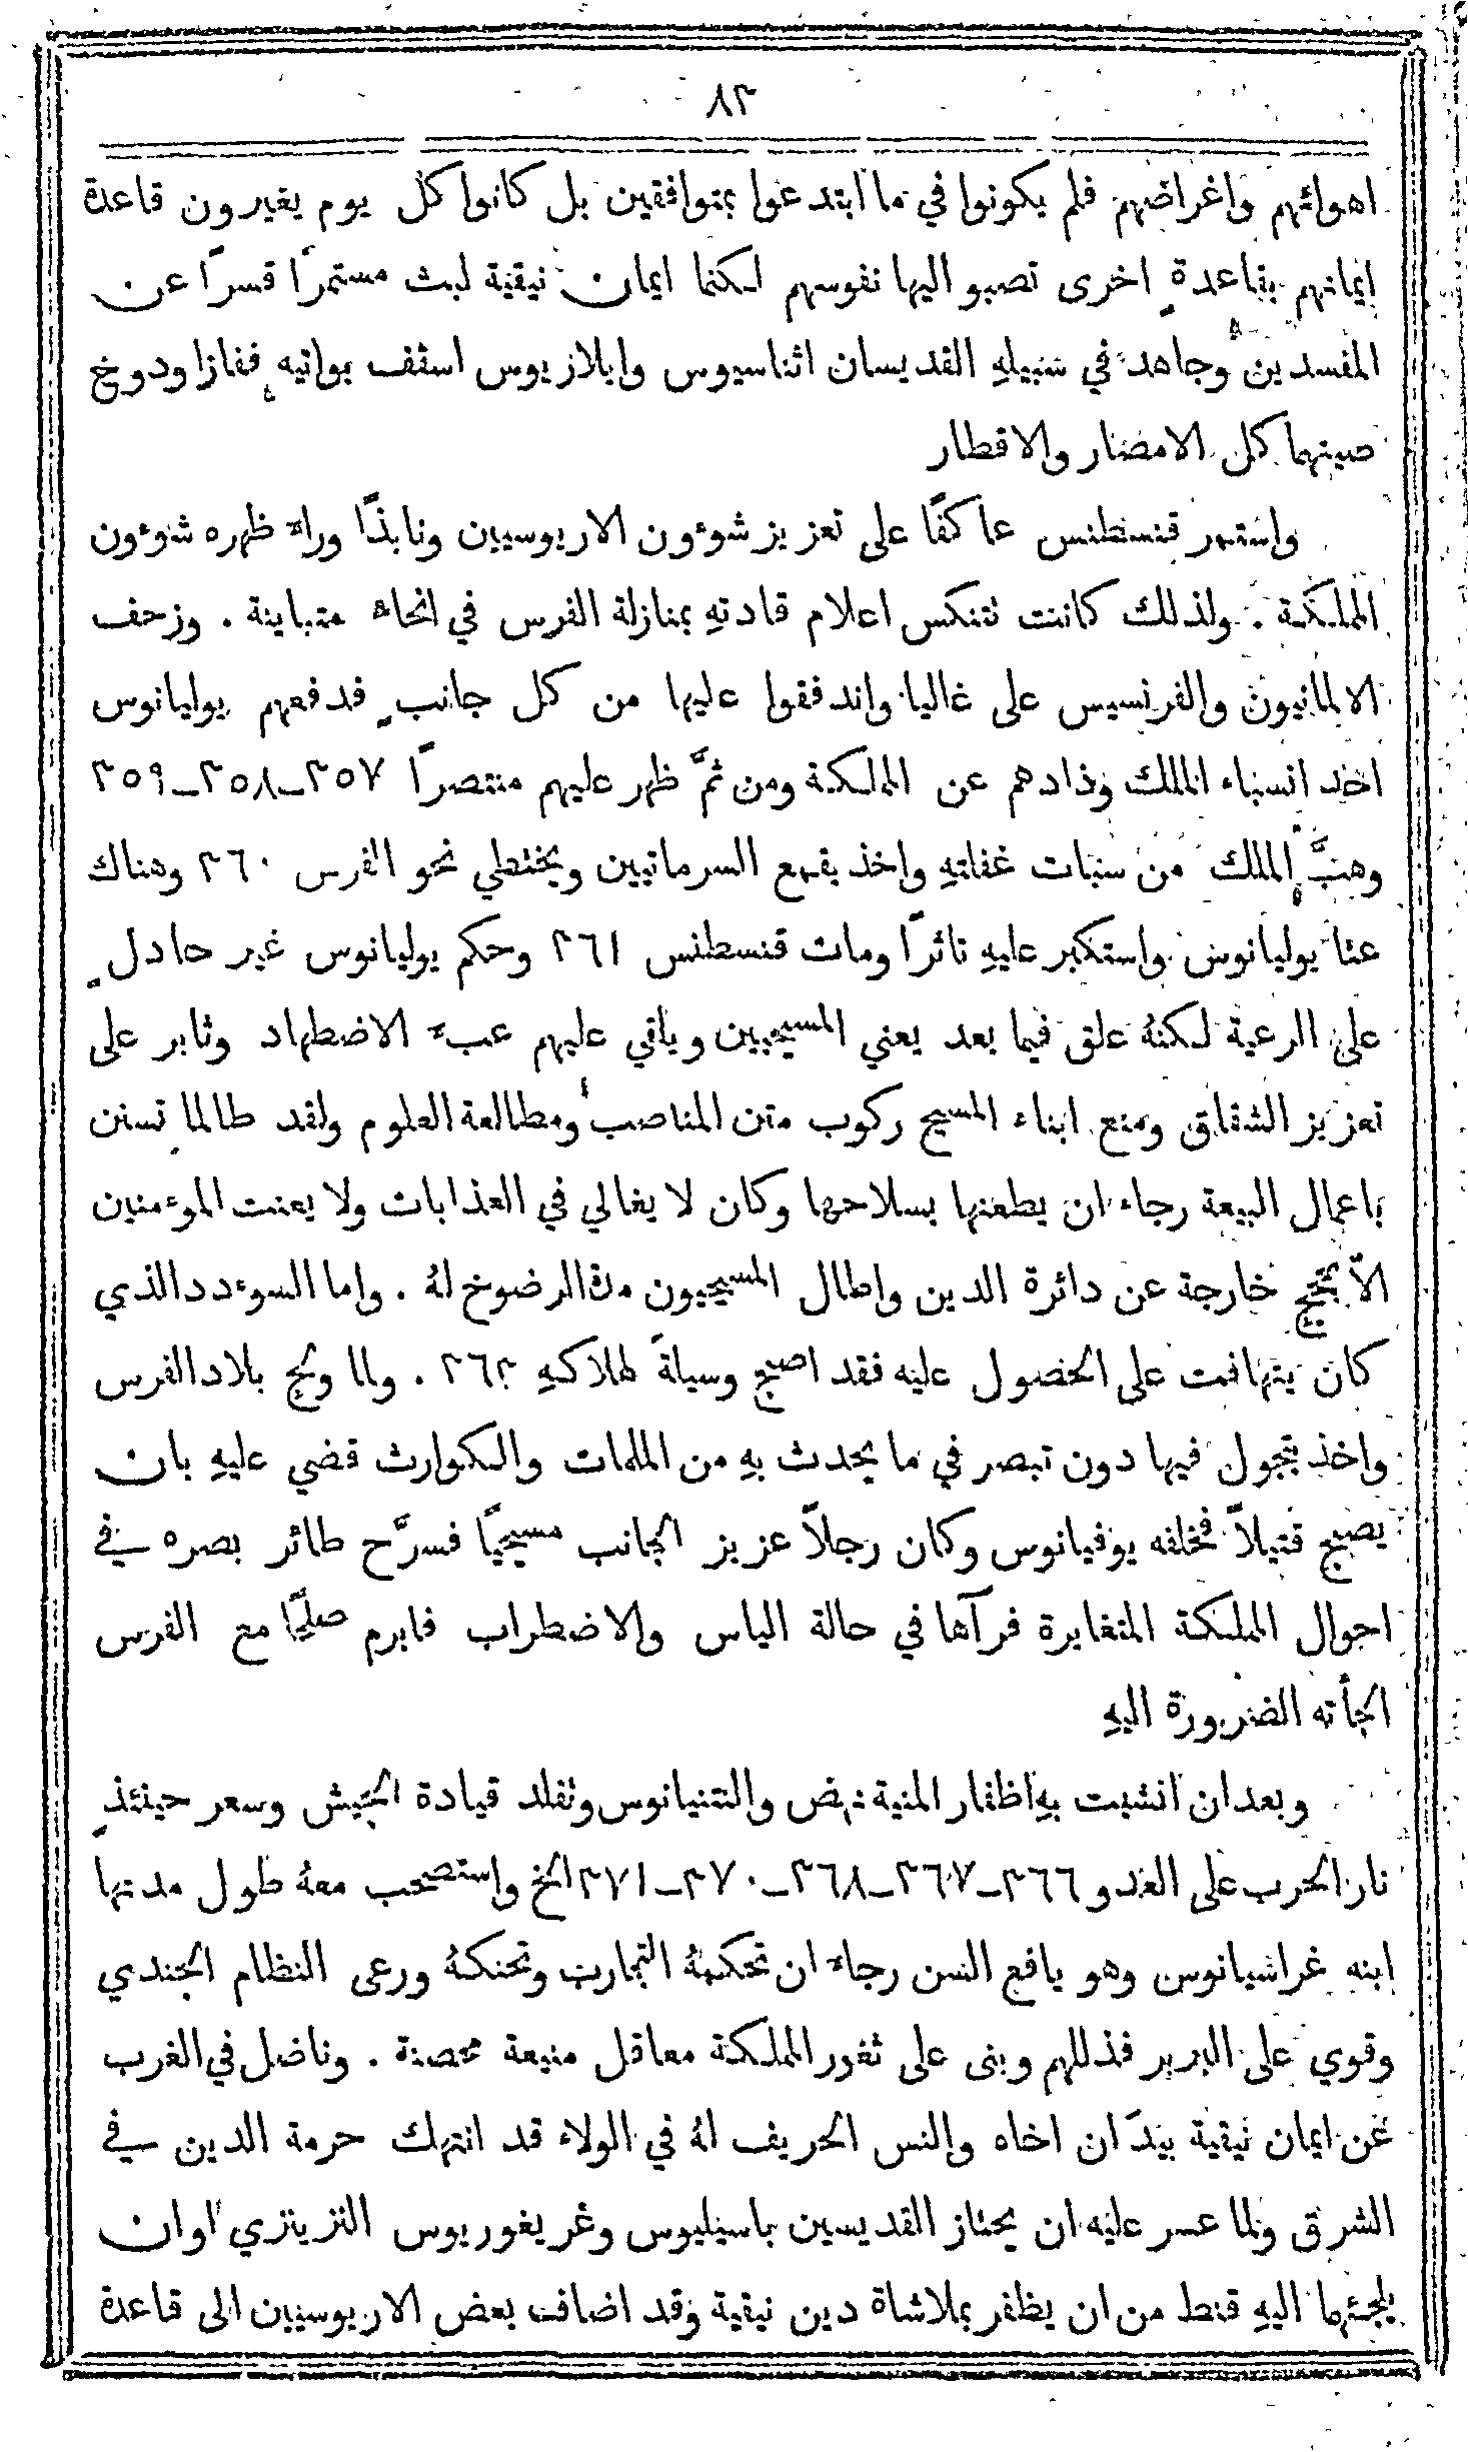 ٨٣
اهوائهم واغراضهم فلم يكونوا في ما ابتدعوا بمتوافقين بل كانوا كل يوم يغيرون قاعدة
ايمانهم بقاعدةٍ اخرى تصبو اليها نفوسهم لكنما ايمان نيقية لبث مستمرًا قسرًا عن
المفسدين وجاهد في سبيلهِ القديسان اثناسيوس وايلاريوس اسقف بواتيه ففازا ودوخ
صيتهما كل الامصار والاقطار
واستمر قنسطنس عاكفًا على تعزيز شوءون الاريوسيين ونابذًا وراءَ ظهره شوءون
المملكة . ولذلك كانت تنتكس اعلام قادتهِ بمنازلة الفرس في انحاءٍ متباينة . وزحف
الالمانيون والفرنسيس على غاليا واندفقوا عليها من كل جانبٍ فدفعهم يوليانوس
احد انسباء الملك وذادهم عن المملكة ومن ثمَّ ظهر عليهم منتصرًا ٣٥٧ــ٣٥٨ــ٣٥٩
وهبَّ الملك من سنبات غفلتهِ واخذ يقمع السرماتيين ويختطي نحو الفرس ٣٦٠ وهناك
عتا يوليانوس واستكبر عليهِ ثائرًا ومات قنسطنس ٣٦١ وحكم يوليانوس غير حادلٍ
على الرعية لكنهُ علق فيما بعد يعني المسيحيين ويلقي عليهم عبءَ الاضطهاد وثابر على
تعزيز الشقاق ومنع ابناء المسيح ركوب متن المناصب ومطالعة العلوم ولقد طالما تسنن
باعمال البيعة رجاء ان يطعنها بسلاحها وكان لا يغالي في العذابات ولا يعنت الموءمنين
الاَّ بحجج خارجة عن دائرة الدين واطال المسيحيون مدة الرضوخ لهُ . واما السوءدد الذي
كان يتهافت على الحصول عليه فقد اصبح وسيلةً لهلاكهِ ٣٦٣ . ولما ولج بلاد الفرس
واخذ يتجول فيها دون تبصر في ما يحدث بهِ من الملمات والكوارث قضي عليهِ بان
يصبح قتيلاً فخلفه يوفيانوس وكان رجلاً عزيز الجانب مسيحيًا فسرَّح طائر بصره في
احوال المملكة المتغايرة فرآها في حالة الياس والاضطراب فابرم صلحًا مع الفرس
الجأته الضرورة اليهِ
وبعد ان انشبت بهِ اظفار المنية نهض والنتنيانوس وتقلد قيادة الجيش وسعر حينئذٍ
نار الحرب على العدو ٣٦٦ــ٣٦٧ــ٣٦٨ــ٣٧٠ــ٣٧١ الخ واستصحب معهُ طول مدتها
ابنه غراشيانوس وهو يافع السن رجاءَ ان تحكمهُ التجارب وتحنكهُ ورعى النظام الجندي
وقوي على البربر فذللهم وبنى على ثغور المملكة معاقل منيعة محصنة . وناضل في الغرب
عن ايمان نيقية بيدَ ان اخاه والنس الحريف لهُ في الولاء قد انتهك حرمة الدين في
الشرق ولما عسر عليه ان يحتاز القديسين باسيليوس وغريغوريوس النزينزي اوان
يلجئهما اليهِ قنط من ان يظفر بملاشاة دين نيقية وقد اضاف بعض الاريوسيين الى قاعدة